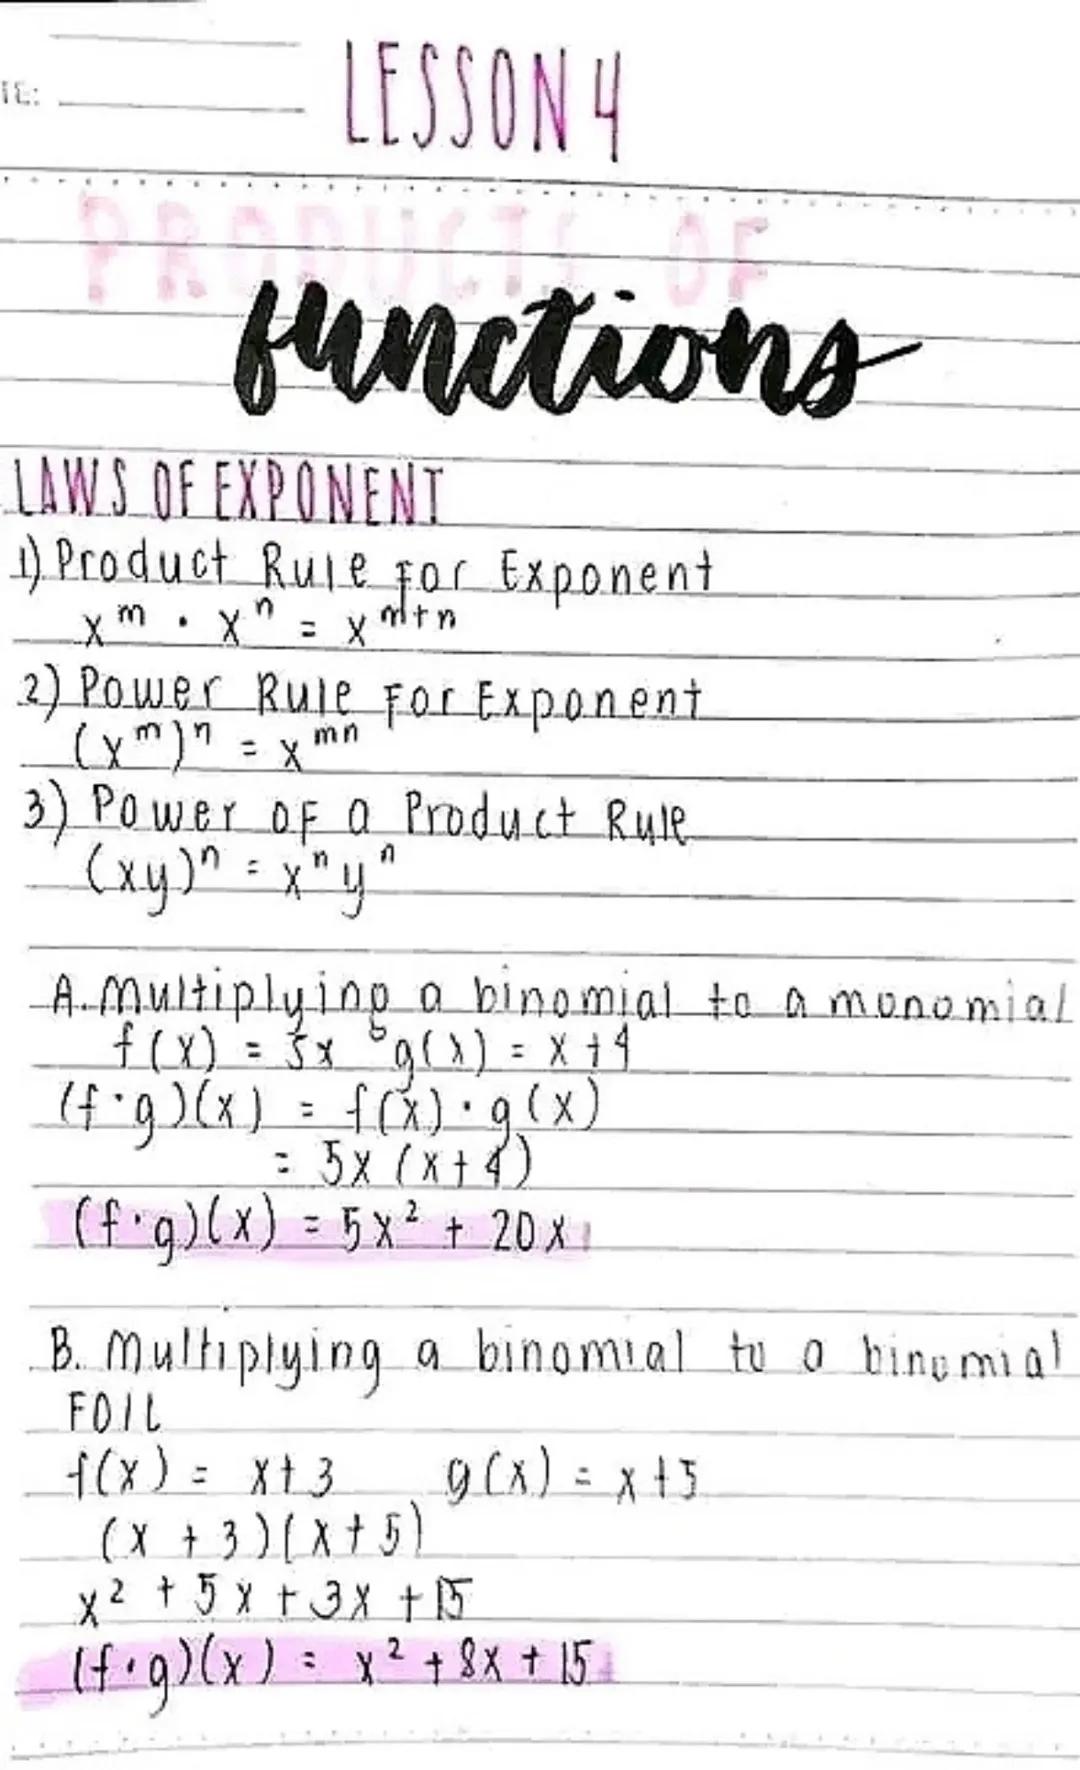 TE:
LESSON 4
PRODUCTS OF
functions
LAWS OF EXPONENT
1) Product Rule For Exponent
x^m · x^n = x^m+n
2) Power Rule For Exponent
(x^m)^n = x^mn
3) Power of a Product Rule
(xy)^n = x^n y^n
A. Multiplying a binomial to a monomial
f(x) = 5x g(x) = x+4
(f·g)(x) = f(x) · g(x)
= 5x (x+4)
(f·g)(x) = 5x² + 20x
B. Multiplying a binomial to a binomial
FOIL
f(x) = x+3 g(x) = x+5
(x + 3)(x+5)
x² + 5x + 3x + 15
(f·g)(x) = x² + 8x + 15